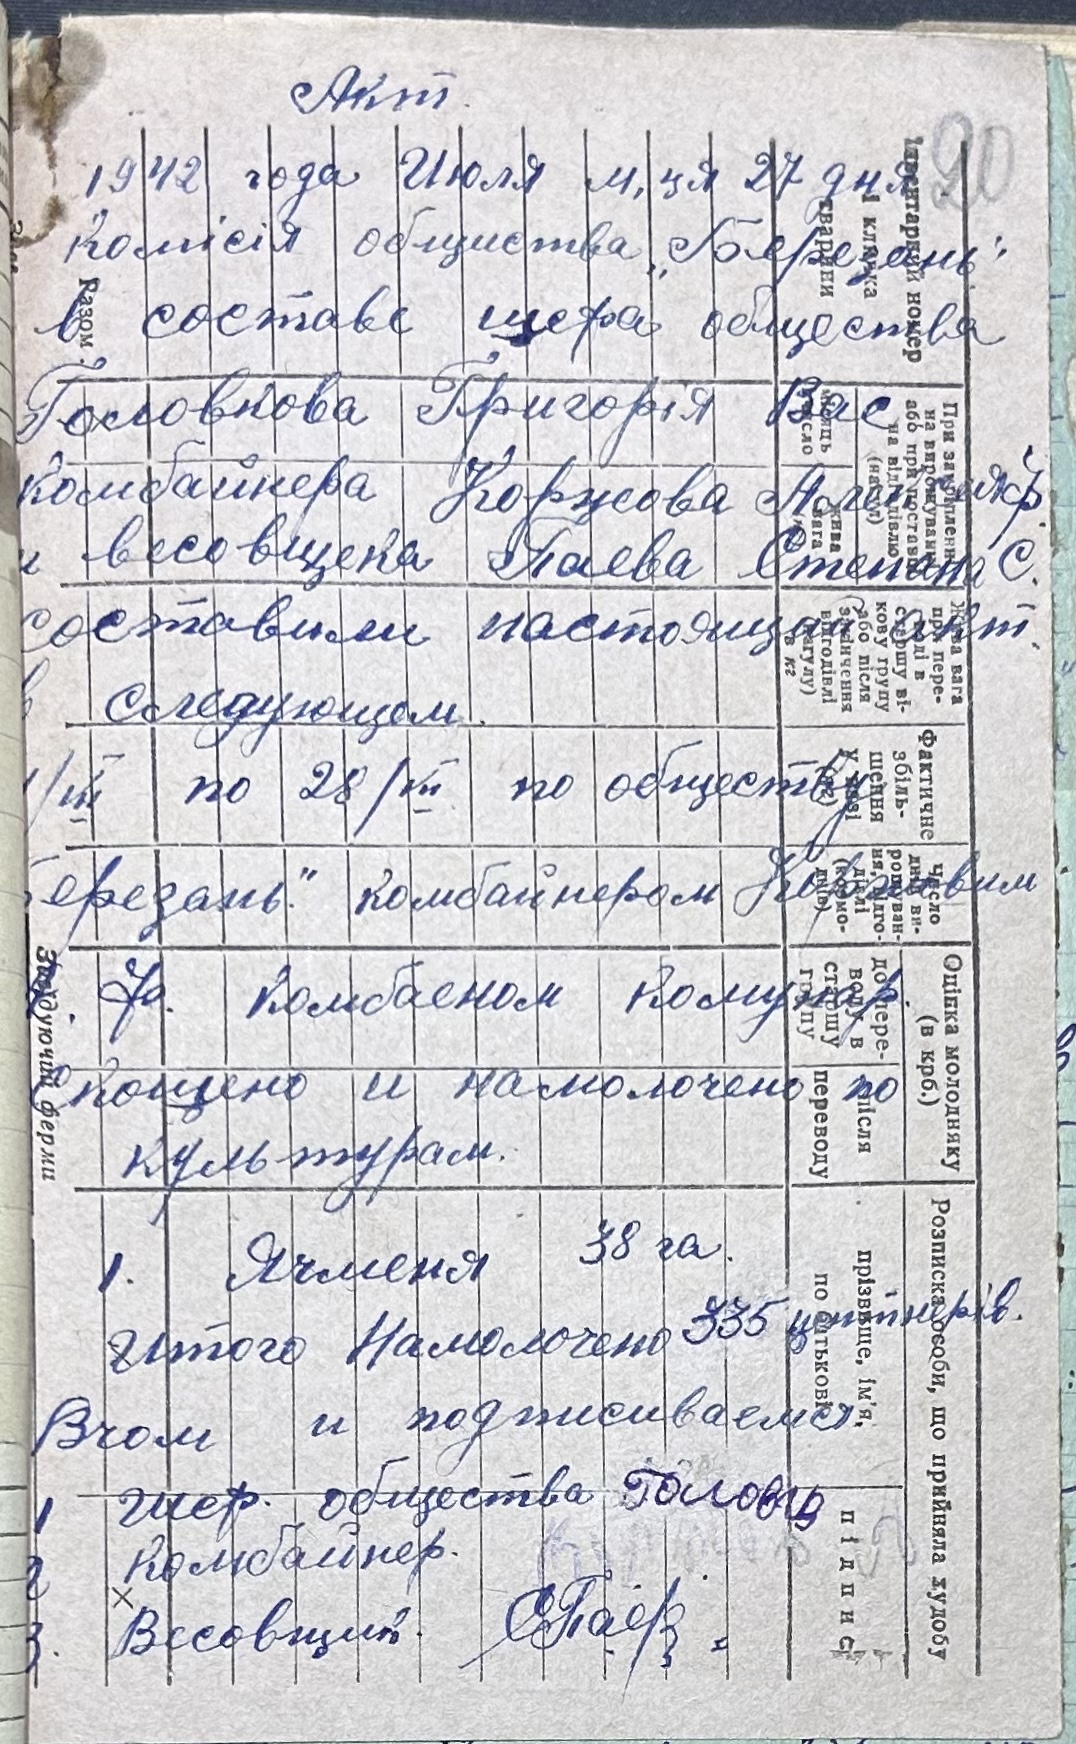 Акт.
20
1942 года Июля м,ця 27 дня
Комісія общиства „Березань"
в составе шефа общества
Головкова Григорія Вас
Комбайнера Коржова
и весовщека Паева Степана С.
составили настоящий акт.
в следующем.
/VII по 28/VII по обществу
Березань" комбайнером Коржовим
комбаеном Комунар.
Скошено и намолочено по
культурам.
1. Ячменя 38 га.
Итого Намолочено 335 центнерів.
Вчом и подписиваемся.
1 шеф. общества Головко
2 Комбайнер.
3. Весовщик. СПаев
Інвентарний номер
і кличка
тварини
При закріпленні
на вирощування
або при поставці
на відгодівлю
(нагул)
місяць
число
жива
вага
Жива вага
при пере-
воді в
старшу ві-
кову групу
або після
закінчення
відгодівлі
(нагулу)
в кг
Фактичне
збіль-
шення
у вазі
Число
днів ви-
рощуван-
ня, відго-
дівлі
(кормо-
днів)
Оцінка молодняку
(в крб.)
до пере-
воду в
старшу
групу
після
переводу
Розписка особи, що прийняла худобу
прізвище, ім'я,
по батькові
підпис
Разом:
Завідуючий ферми